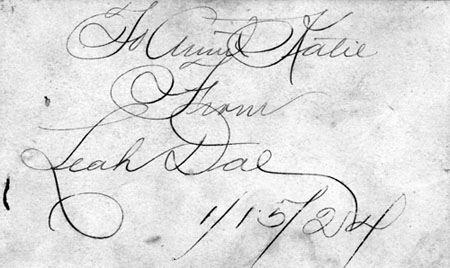 To Aunt Katie
From
Leah Dae
1/15/24